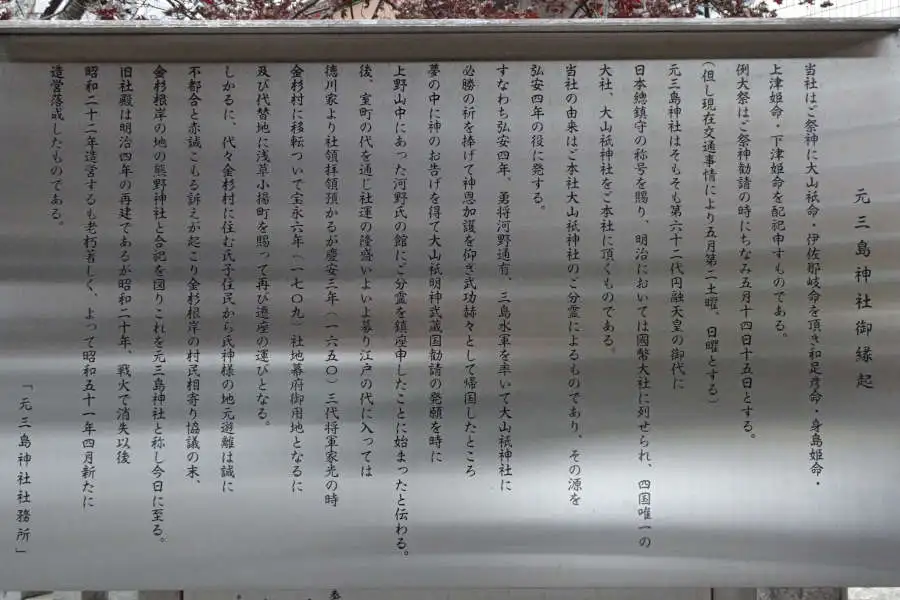 元三島神社御縁起
当社はご祭神に大山祇命・伊佐那岐命を頂き和足彦命・身島姫命・
上津姫命・下津姫命を配祀申すものである。
例大祭はご祭神勧請の時にちなみ五月十四日十五日とする。
(但し現在交通事情により五月第二土曜、日曜とする)
元三島神社はそもそも第六十二代円融天皇の御代に
日本總鎮守の称号を賜り、明治においては國幣大社に列せられ、四国唯一の
大社、大山祇神社をご本社に頂くものである。
当社の由来はご本社大山祇神社のご分霊によるものであり、その源を
弘安四年の役に発する。
すなわち弘安四年、勇将河野通有、三島水軍を率いて大山祇神社に
必勝の祈を捧げて神恩加護を仰ぎ武功赫々として帰国したところ
夢の中に神のお告げを得て大山祇明神武蔵国勧請の発願を時に
上野山中にあった河野氏の館にご分霊を鎮座申したことに始まったと伝わる。
後、室町の代を通じ社運の隆盛いよいよ募り江戸の代に入っては
徳川家より社領拝領預かるが慶安三年(一六五〇)三代将軍家光の時
金杉村に移転ついで宝永六年(一七〇九)社地幕府御用地となるに
及び代替地に浅草小揚町を賜って再び遷座の運びとなる。
しかるに、代々金杉村に住む氏子住民から氏神様の地元遊離は誠に
不都合と赤誠こもる訴えが起こり金杉根岸の村民相寄り協議の末、
金杉根岸の地の熊野神社と合祀を図りこれを元三島神社と称し今日に至る。
旧社殿は明治四年の再建であるが昭和二十年、戦火で消失以後
昭和二十二年造営するも老朽著しく、よって昭和五十一年四月新たに
造営落成したものである。
「元三島神社社務所」